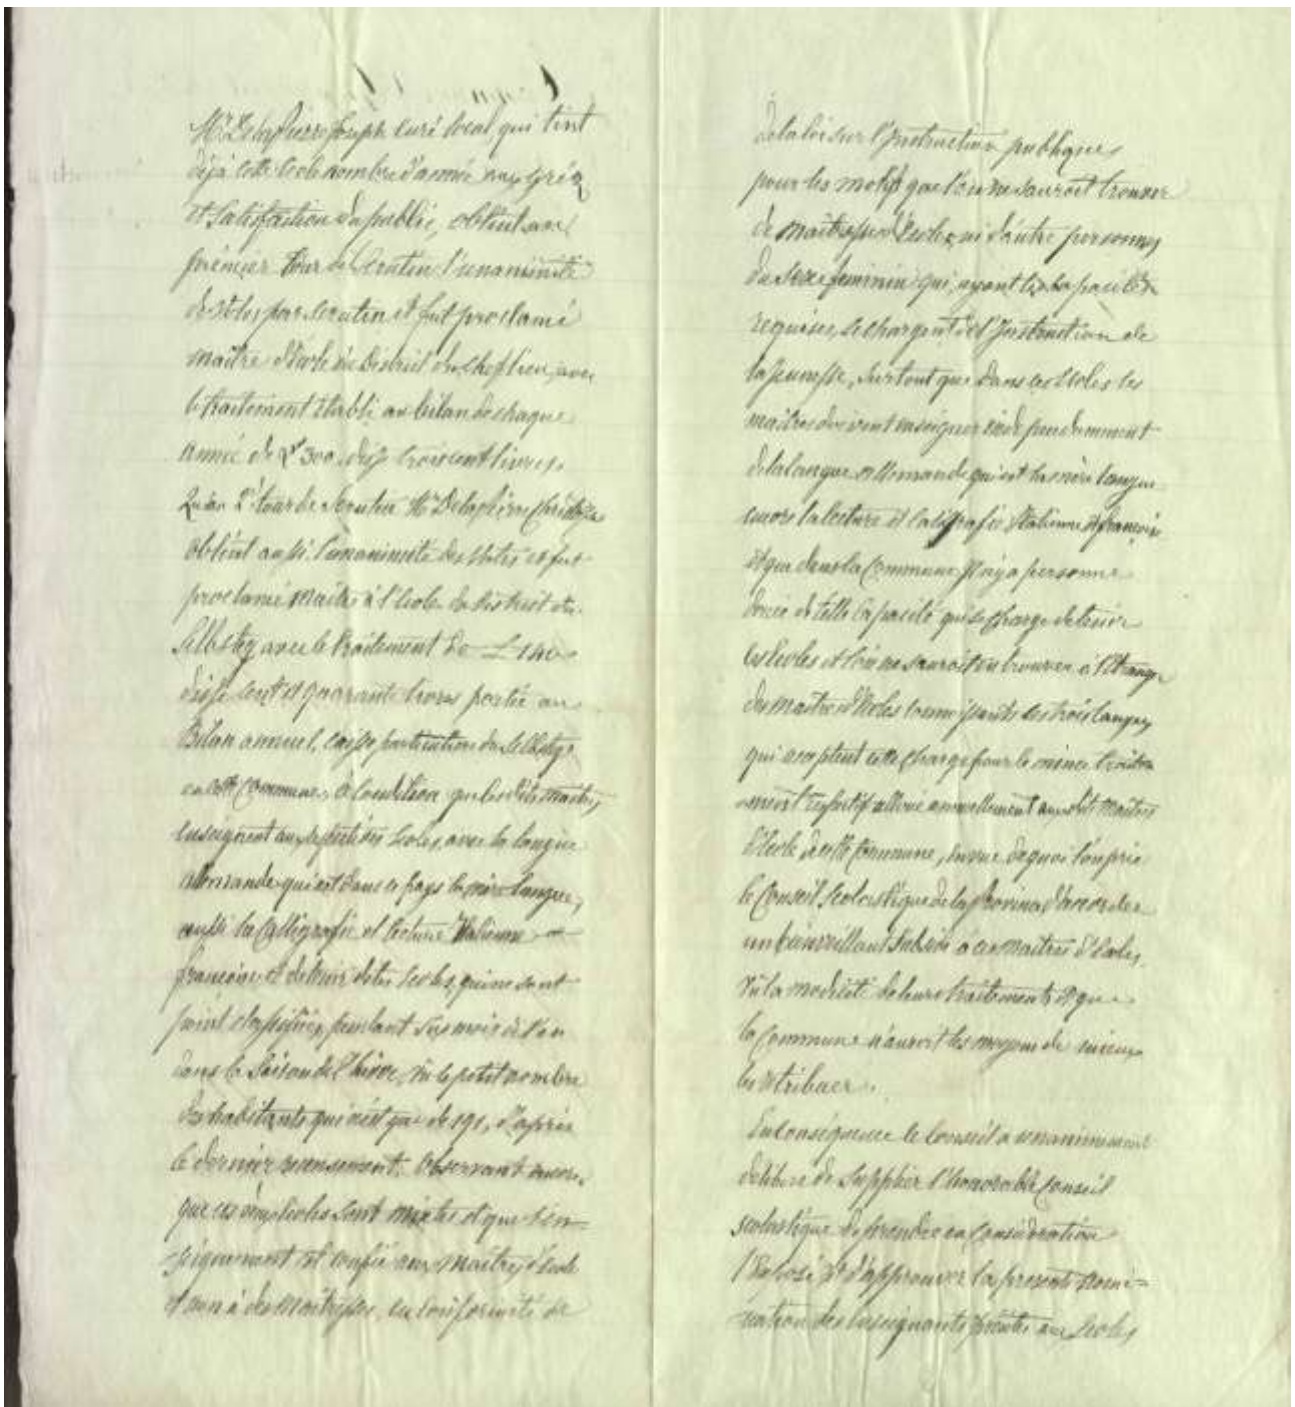 Mr Delapierre Joseph curé local, qui tint
déjà cette école nombre d'année aux gréz
et Satisfaction du public, obtint au
premier tour de Scrutin l'unanimité
de votes par scrutin et fut proclamé
maître d'école du District du Cheflieu, avec
le traitement établi au bilan de chaque
année de 300. dis-je trois cent livres.
Qu'au 2e tour de Scrutin Mr Delapierre
obtint aussi l'unanimité des Votes et fut
proclamé Maître à l'école du District de
Selbsteg avec le traitement de £ 140
dis-je cent et quarante livres portée au
Bilan annuel, caisse particulière du Selbsteg
en cette Commune, à condition que les dits maitres
enseignent aux respectives écoles, avec la langue
allemande qui est dans ce pays la mère langue,
aussi la Calligrafie et lecture Italienne et
françoise et de tenir dites écoles, qui ne sont
point classifiées, pendant six mois de l'an
dans la Saison de l'hiver, vu le petit nombre
des habitants qui n'est que de 191, d'après
le dernier recensement. Observant encore
que ces écoles sont mixtes et que l'en-
seignement est confié aux maîtres d'école
et non à des Maitresses, en conformité de
de la loi sur l'Instruction publique,
pour les motifs que l'on ne sauroit trouver
de maitresses d'école, ni d'autre personnes
du Sexe féminin qui, ayant les capacités
requises, se chargent de l'Instruction de
la jeunesse, surtout que dans ces écoles les
maitres doivent enseigner indépendamment
de la langue allemande qui est la mère langue
encore la lecture et caligrafie Italienne et françoise
et que dans la Commune il n'y a personne
douée de telle capacité qui se charge de tenir
ces écoles et l'on ne sauroit en trouver à l'étranger
des maitres d'écoles connoissants les trois langues
qui acceptent cette charge pour le mince traite-
ment respectif alloué annuellement aux dits maitres
d'école de cette Commune, en vue de quoi l'on prie
le Conseil Scolastique de la Province d'accorder
un bienveillant Subside à ces maitres d'écoles,
vu la modicité de leurs traitements et que
la Commune n'auroit les moyens de mieux
les rétribuer.
En conséquence le Conseil a unanimement
délibéré de Supplier l'honorable Conseil
scolastique de prendre en Considération
l'Exposé et d'approuver la présente nomi=
nation des enseignants aux écoles